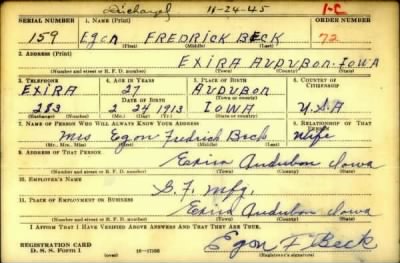 Discharged 11-24-45 1-C
SERIAL NUMBER 1. NAME (Print) ORDER NUMBER
159 Egon FREDRICK BECK 72
(First) (Middle) (Last)
2. ADDRESS (Print)
EXIRA AUDUBON IOWA
(Number and street or R. F. D. number) (Town) (County) (State)
3. TELEPHONE 4. AGE IN YEARS 5. PLACE OF BIRTH 6. COUNTRY OF CITIZENSHIP
EXIRA 27 AUDUBON
DATE OF BIRTH (Town or county)
283 2 24 1913 IOWA USA
(Exchange) (Number) (Mo.) (Day) (Yr.) (State or country)
7. NAME OF PERSON WHO WILL ALWAYS KNOW YOUR ADDRESS 8. RELATIONSHIP OF THAT PERSON
Mrs Egon Fredrick Beck Wife
(Mr., Mrs., Miss) (First) (Middle) (Last)
9. ADDRESS OF THAT PERSON
Exira Audubon Iowa
(Number and street or R. F. D. number) (Town) (County) (State)
10. EMPLOYER'S NAME
Mfg.
11. PLACE OF EMPLOYMENT OR BUSINESS
Exira Audubon Iowa
(Number and street or R. F. D. number) (Town) (County) (State)
I AFFIRM THAT I HAVE VERIFIED ABOVE ANSWERS AND THAT THEY ARE TRUE.
Egon F Beck
REGISTRATION CARD
D. S. S. FORM 1 (over) (Registrant's signature)